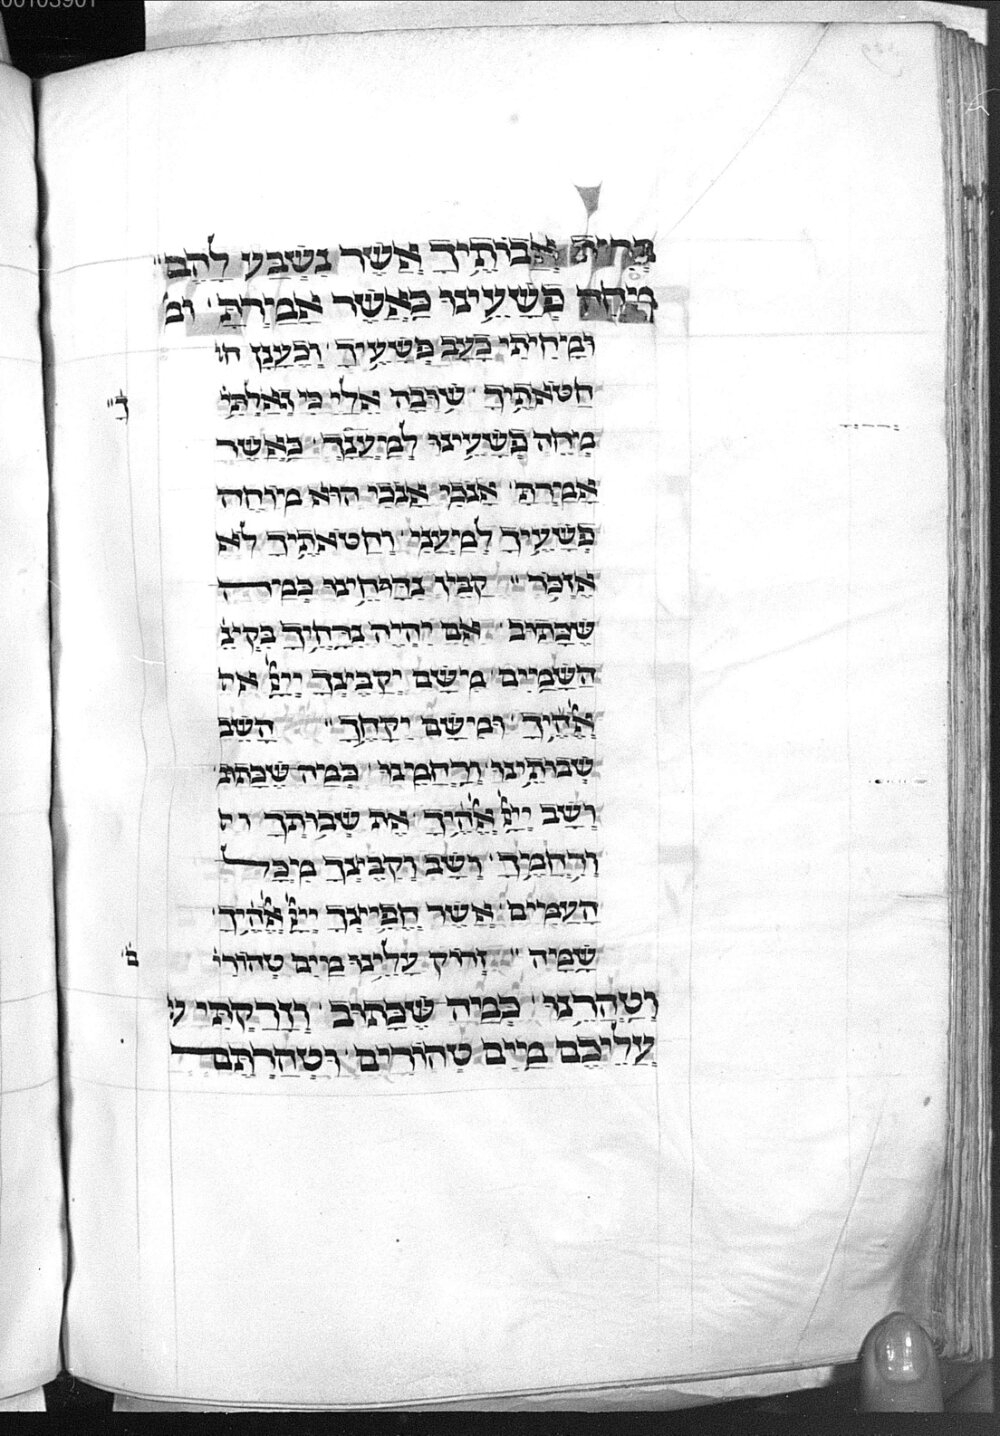 00103901
בְּרִית אֲבוֹתֶיךָ אֲשֶׁר נִשְׁבַּע לָהֶם״
מְחֵה פְשָׁעֵינוּ כַּאֲשֶׁר אָמַרְתָּ ׳ ומ
וּמָחִיתִי כָעָב פְּשָׁעֶיךָ ׳ וְכֶעָנָן חו
חַטֹּאתֶיךָ ׳ שׁוּבָה אֵלַי כִּי גְאַלְתִּי
ךָ״
מְחֵה פְשָׁעֵינוּ לְמַעֲנָךְ ׳ כַּאֲשֶׁר
אָמַרְתָּ ׳ אָנֹכִי אָנֹכִי הוּא מוֹחֶה
פְשָׁעֶיךָ לְמַעֲנִי ׳ וְחַטֹּאתֶיךָ לֹא
אֶזְכֹּר ״ קַבֵּץ נִדָּחֵינוּ כְּמָה
שֶׁכָּתוּב ׳ אִם יִהְיֶה נִדָּחֲךָ בִּקְצֵה
הַשָּׁמַיִם ׳ מִשָּׁם יְקַבֶּצְךָ יְיָ את
אֱלֹהֶיךָ ׳ וּמִשָּׁם יִקָּחֶךָ ״ הָשֵׁב
שְׁבוּתֵינוּ וְרַחֲמֵנוּ ׳ כְּמָה שֶׁכָּתוּב
וְשָׁב יְיָ אֱלֹהֶיךָ ׳ אֶת שְׁבוּתְךָ וה
וְרִחֲמֶךָ ׳ וְשָׁב וְקִבֶּצְךָ מִכָּל
הָעַמִּים ׳ אֲשֶׁר הֱפִיצְךָ יְיָ אֱלֹהֶיךָ
שָׁמָּה ״ זְרוֹק עָלֵינוּ מַיִם טְהוֹרִי
ם׳
וְטַהֲרֵנוּ ׳ כְּמָה שֶׁכָּתוּב ׳ וְזָרַקְתִּי ע
עֲלֵיכֶם מַיִם טְהוֹרִים ׳ וּטְהַרְתֶּם